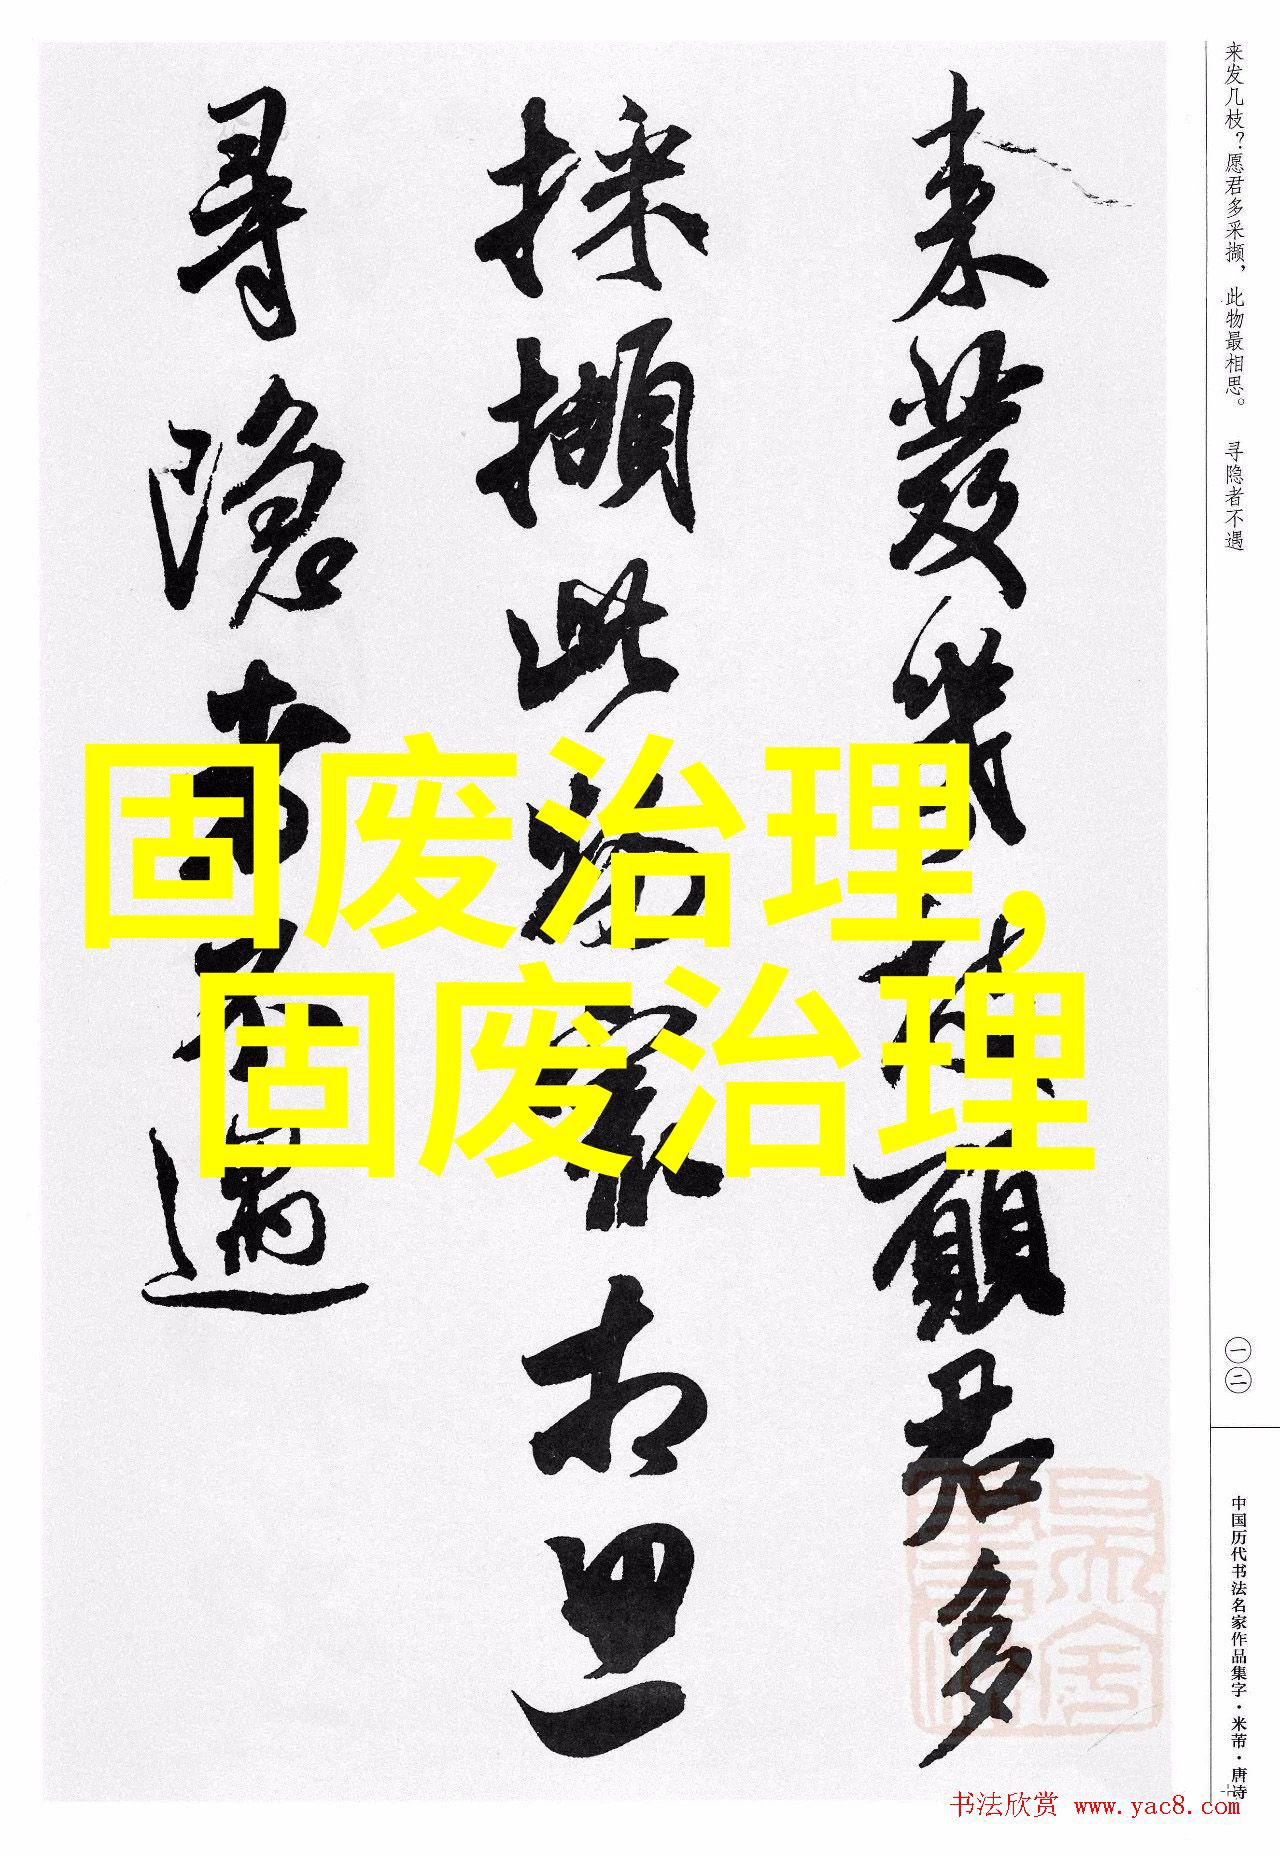 来发几枝？愿君多采撷，此物最相思。 寻隐者不遇
一二
中国历代书法名家作品集字·米芾·唐诗
来發幾枝願君多
採擷此物最相思
尋隱者不遇
固废治理,
固废治理
书法欣赏 www.yac8.com